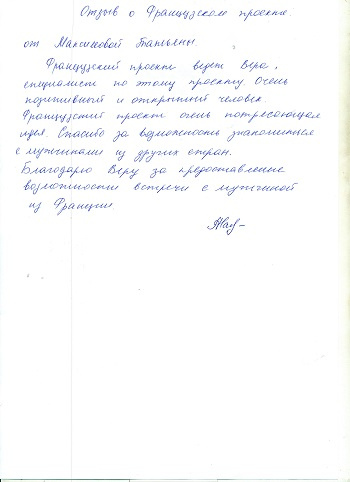 Отзыв о Французском проекте.
от Максимовой Татьяны
Французский проект ведет Вера,
специалист по этому проекту очень
позитивный и открытый человек.
Французский проект очень потресающая
идея. Спасибо за возможность знакомиться
с мужчинами из других стран.
Благодарю Веру за предоставление
возможности встречи с мужчиной
из Франции